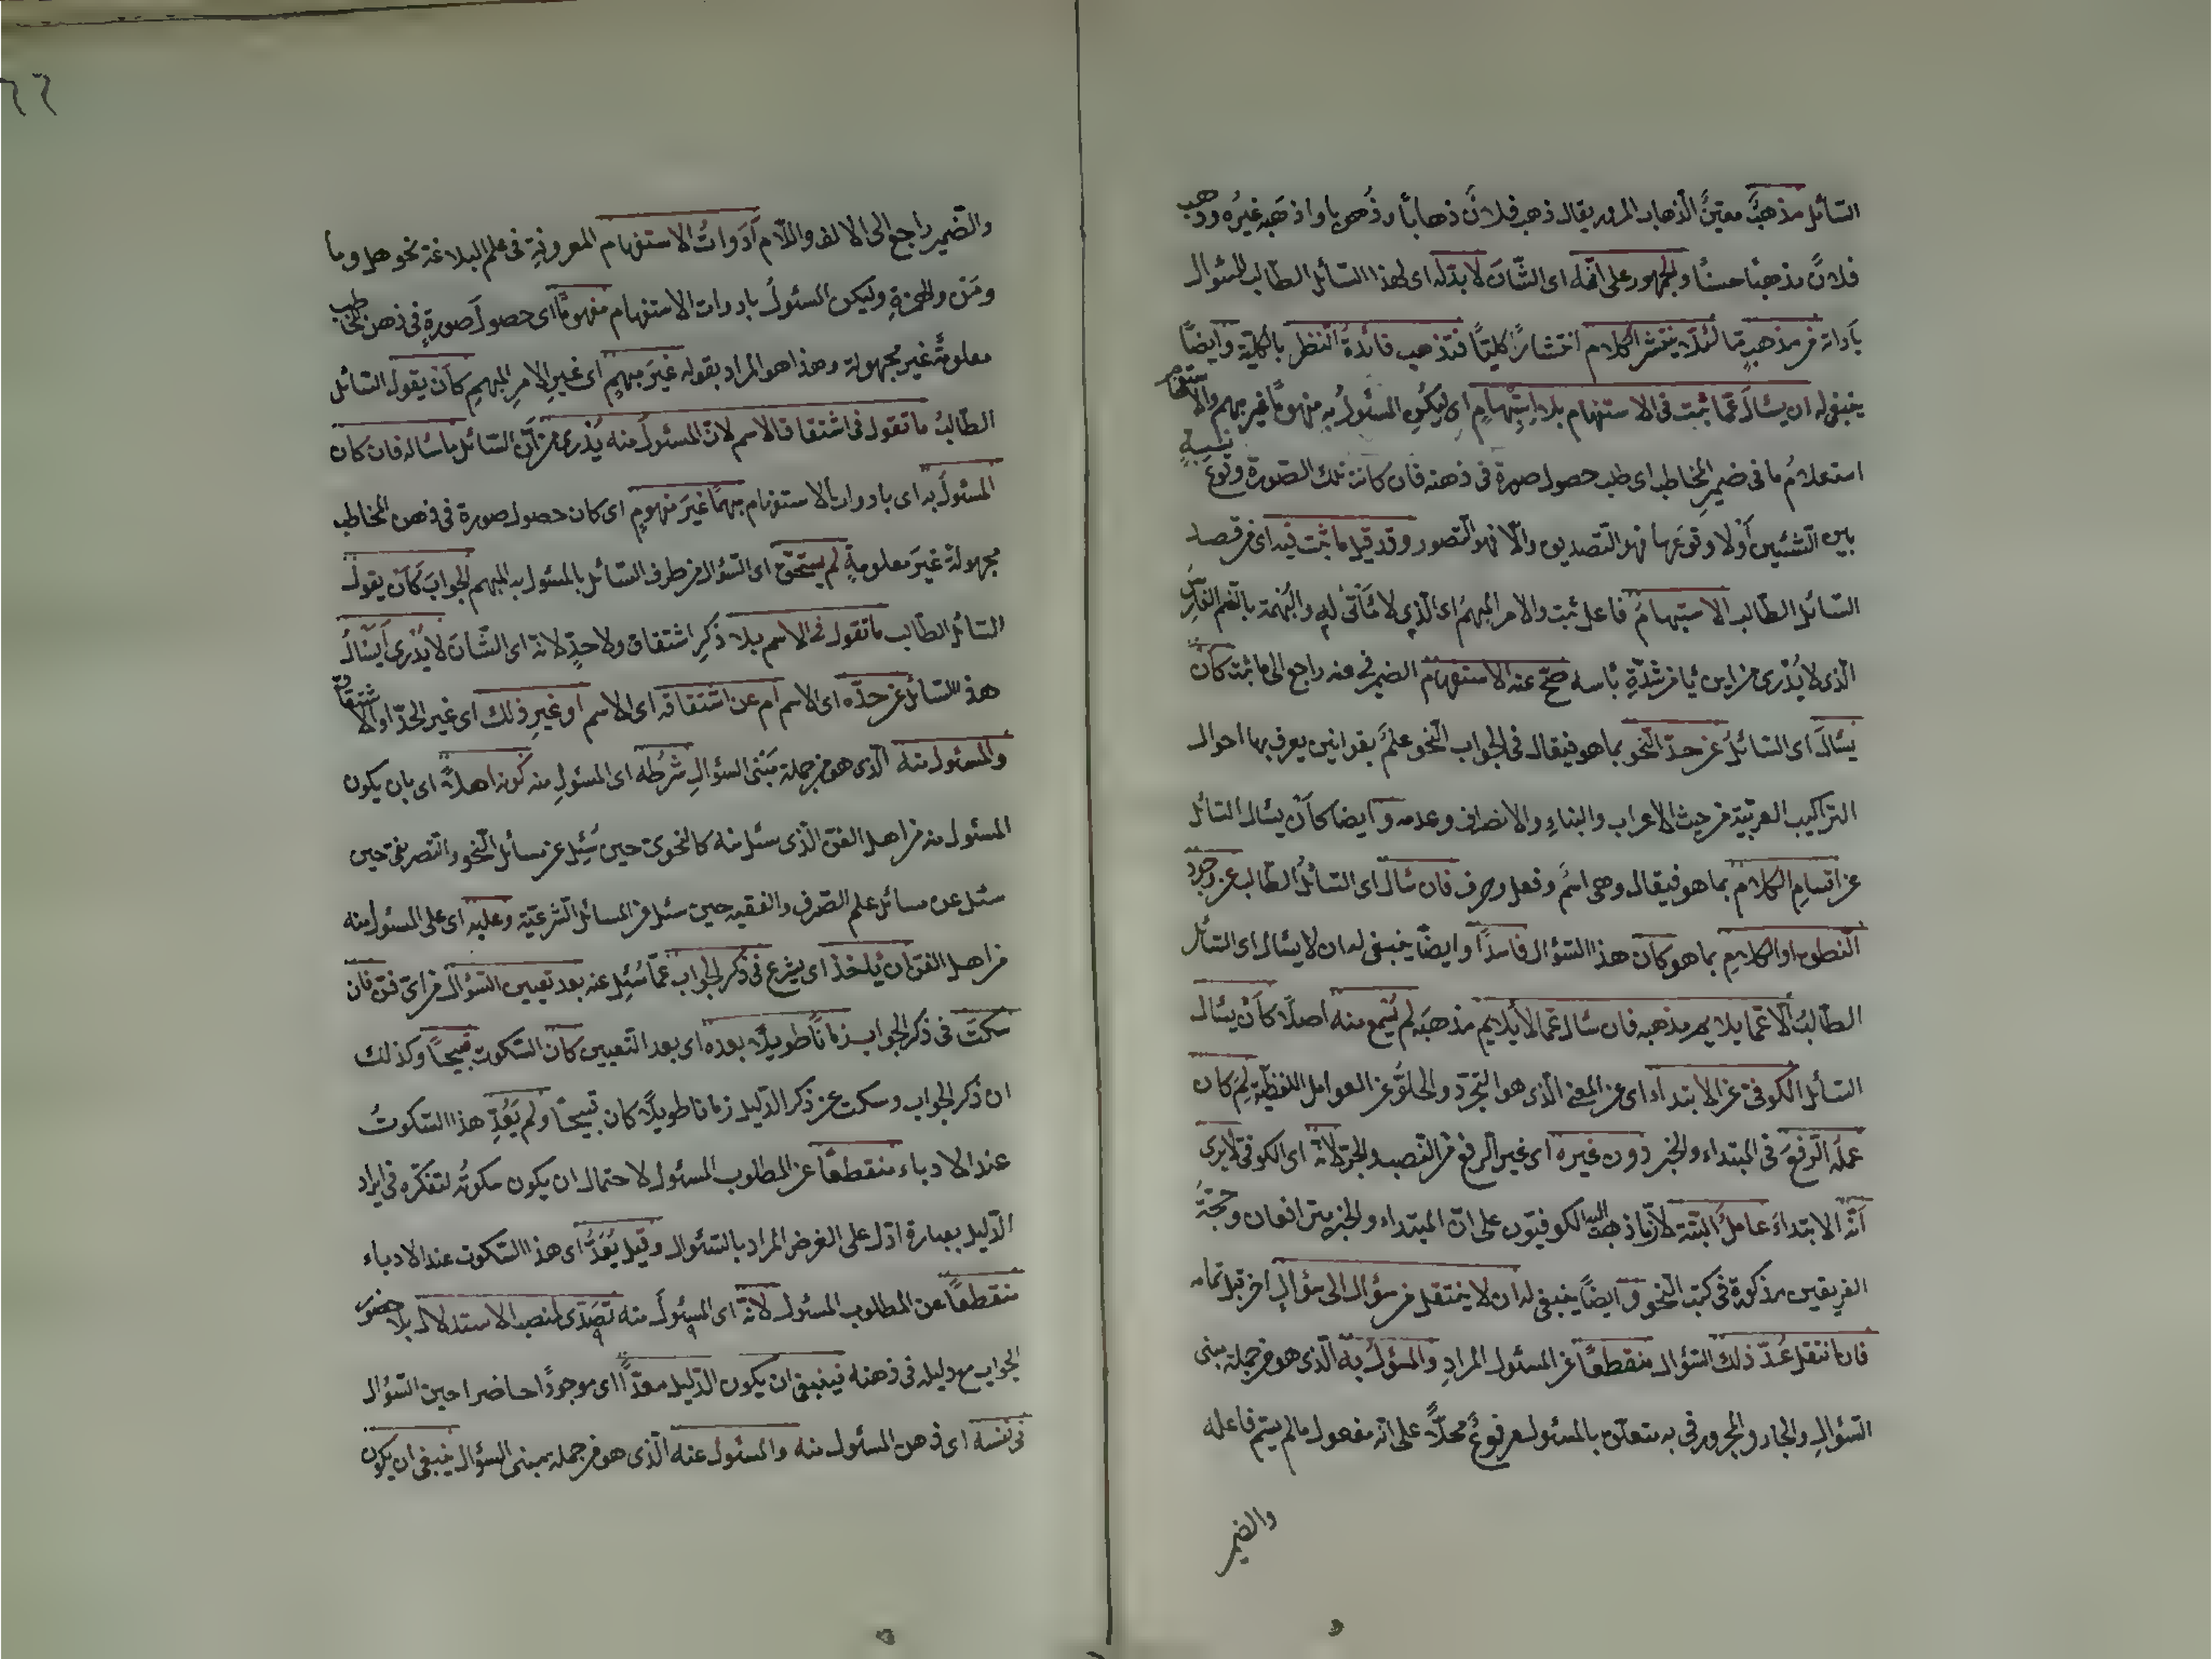 السّائل مذهبٌ معيّنٌ الذهاب المرور يقال ذهب فلانٌ ذهابًا وذُهوبا واذهَبَه غيرُه وذهب
فلانٌ مذهبًا حسنًا والجمهور على انّه اى الشّانَ لا بدّ له اى لهذا السّائل الطّالب للسّئوال
بآداته من مذهبٍ ما لئلّا ينتشر الكلام انتشارًا كليّا فتذهب فائدةُ النظر بالكلية وايضًا
ينبغى له ان يسْالَ عمّا ثبت فى الاستفهام بلا اِسْتِبْهامٍ اى ليكُنِ المسئولُ به مفهومًا غير مبهم والاستفهام
استعلامُ ما فى ضميرِ المخاطب اى طلب حصول صورة فى ذهنه فان كانت تلك الصّورة وقوعَ نسبةٍ
بين الشّيئين اَوْ لا وقوعَها فهو التصديق والّا فهو التصور وقد قيل ما ثبت فيه اى من قصد
السّائل الطّالب الاستبهامُ فاعل ثبت والامر المبهمُ اى الّذى لا مَأتىٰ له والبُهْمَة بالضم الفارسُ
الذى لا يُدْرى من اين يؤتى من شدّةِ بَاْسه صحّ عنه الاستفهام الضمير فى عنه راجع الى ما ثبت كاَنْ
يَسْالَ اى السّائلُ عن حدّ النّحو بما هو فيقال فى الجواب النّحو علمٌ بقوانين يعرف بها احوال
التراكيب العربيّة من حيث الاعراب والبناءِ والانصراف وعدمه وايضا كاَنْ يسئال السّائل
عن اقسامِ الكلام بما هو فيقال وهى اسمٌ وفعل وحرف فان سْال اى السّائلُ الطّالب عن وجود
النّطق او الكلامِ بما هو كان هذا السّؤال فاسدًا وايضًا ينبغى له ان لا يسْال اى السّائل
الطّالبُ اِلّا عمّا يلايم مذهبه فان سْال عمّا لا يلايم مذهبَه لم يُسْمع منه اصلًا كاَنْ يسئال
السّائل الكوفىّ عن الابتداء اى عن المعنى الّذى هو التجرّد والخلوُّ عن العوامل اللفظيّة لِمَ كان
عملُه الرّفعَ فى المبتداء والخبر دون غيره اى غير الرفع من النّصب والجرّ لانّه اى الكوفىّ لا يرى
اَنّ الابتداءَ عاملُ البتّة لانّ ما ذهب اليه الكوفيّون على انّ المبتداء والخبر يترافعان وحجّةُ
الفريقين مذكورة فى كتب النّحو وايضًا ينبغى له ان لا ينتقل من سؤال الى سؤالٍ اخر قبل تمامه
فان انتقل عُدّ ذلك السّؤال منقطعًا عن المسئول المرادِ والمسؤلُ به الّذى هو من جملة مبنى
السّؤالِ والجار والمجرور فى به متعلّق بالمسئول مرفوعٌ محلًّا على انّه مفعول ما لم يسمّ فاعله
والضمير
٦٦
والضّمير راجع الى الالف واللّام اَدَواتُ الاستفهام المعروفةِ فى علم البلاغة نحو هل وما
ومَنْ والهمزةِ وليكن المسئولُ بادوات الاستفهام مفهومًا اى حصولَ صورةٍ فى ذهن المخاطب
معلومةً غير مجهولة وهذا هو المراد بقوله غيرَ مبهمٍ اى غيرِ الامرِ المبهمِ كاَنْ يقول السّائل
الطّالبُ ما تقول فى اشتقاق الاسم لانّ المسئولَ منه يَدْرى من اَنّ السّائل ما سْاله فان كان
المسئولَ به اى بادوات الاستفهام مبهمًا غيرَ مفهومٍ اى كان حصول صورة فى ذهن المخاطب
مجهولةً غيرَ معلومةٍ لم يستحقّ اى السّؤال من طرف السّائل بالمسئول به المبهم الجوابَ كاَنْ يقول
السّائل الطّالب ما تقول فى الاسم بلا ذكرِ اشتقاق ولا حدٍّ لانّه اى الشّانَ لا يُدْرى اَيَسْالُ
هذا السّائل عن حدّه اى الاسم ام عن اشتقاقه اى الاسم او غيرِ ذلك اى غير الحدّ او الاشتقاق
والمسئول منه الّذى هو من جملة مَبْنى السؤالِ شرطُه اى المسئولِ منه كونه اهلًا اى بان يكون
المسئول منه من اهل الفنّ الّذى سئل منه كالنحوىّ حين سُئِل عن مسائل النّحو والتصريفىّ حين
سئل عن مسائل علم الصّرف والفقيه حين سئل من المسائل الشّرعيّة وعليه اى على المسئول منه
من اهل الفنّ ان يْاخذ اى يشرع فى ذكر الجواب عمّا سُئِل عنه بعد تعيين السّؤال من اىّ فنّ فان
سكتَ فى ذكر الجواب زمانًا طويلًا بعده اى بعد التّعيين كان السّكوت قبيحًا وكذلك
ان ذكر الجواب وسكت عن ذكر الدّليل زمانا طويلًا كان قبيحًا ولم يُعَدّ هذا السّكوتُ
عند الادباء منقطعًا عن المطلوب المسئول لاحتمال ان يكون سكوتُه لتفكّره فى ايراد
الدّليل بعبارة ادلّ على الغرض المراد بالسّئوال وقيل يُعَدُّ اى هذا السّكوت عند الادباء
منقطعًا عن المطلوب المسئول لانّه اى المسئولَ منه تصَدّى لمنصب الاستدلال بلا حضور
الجواب مع دليله فى ذهنه فينبغى ان يكون الدّليل معدًّا اى موجودًا حاضرا حين السّؤال
فى نفسه اى ذهن المسئول منه والمسئول عنه الّذى هو من جملة مبنى السؤال ينبغى ان يكون